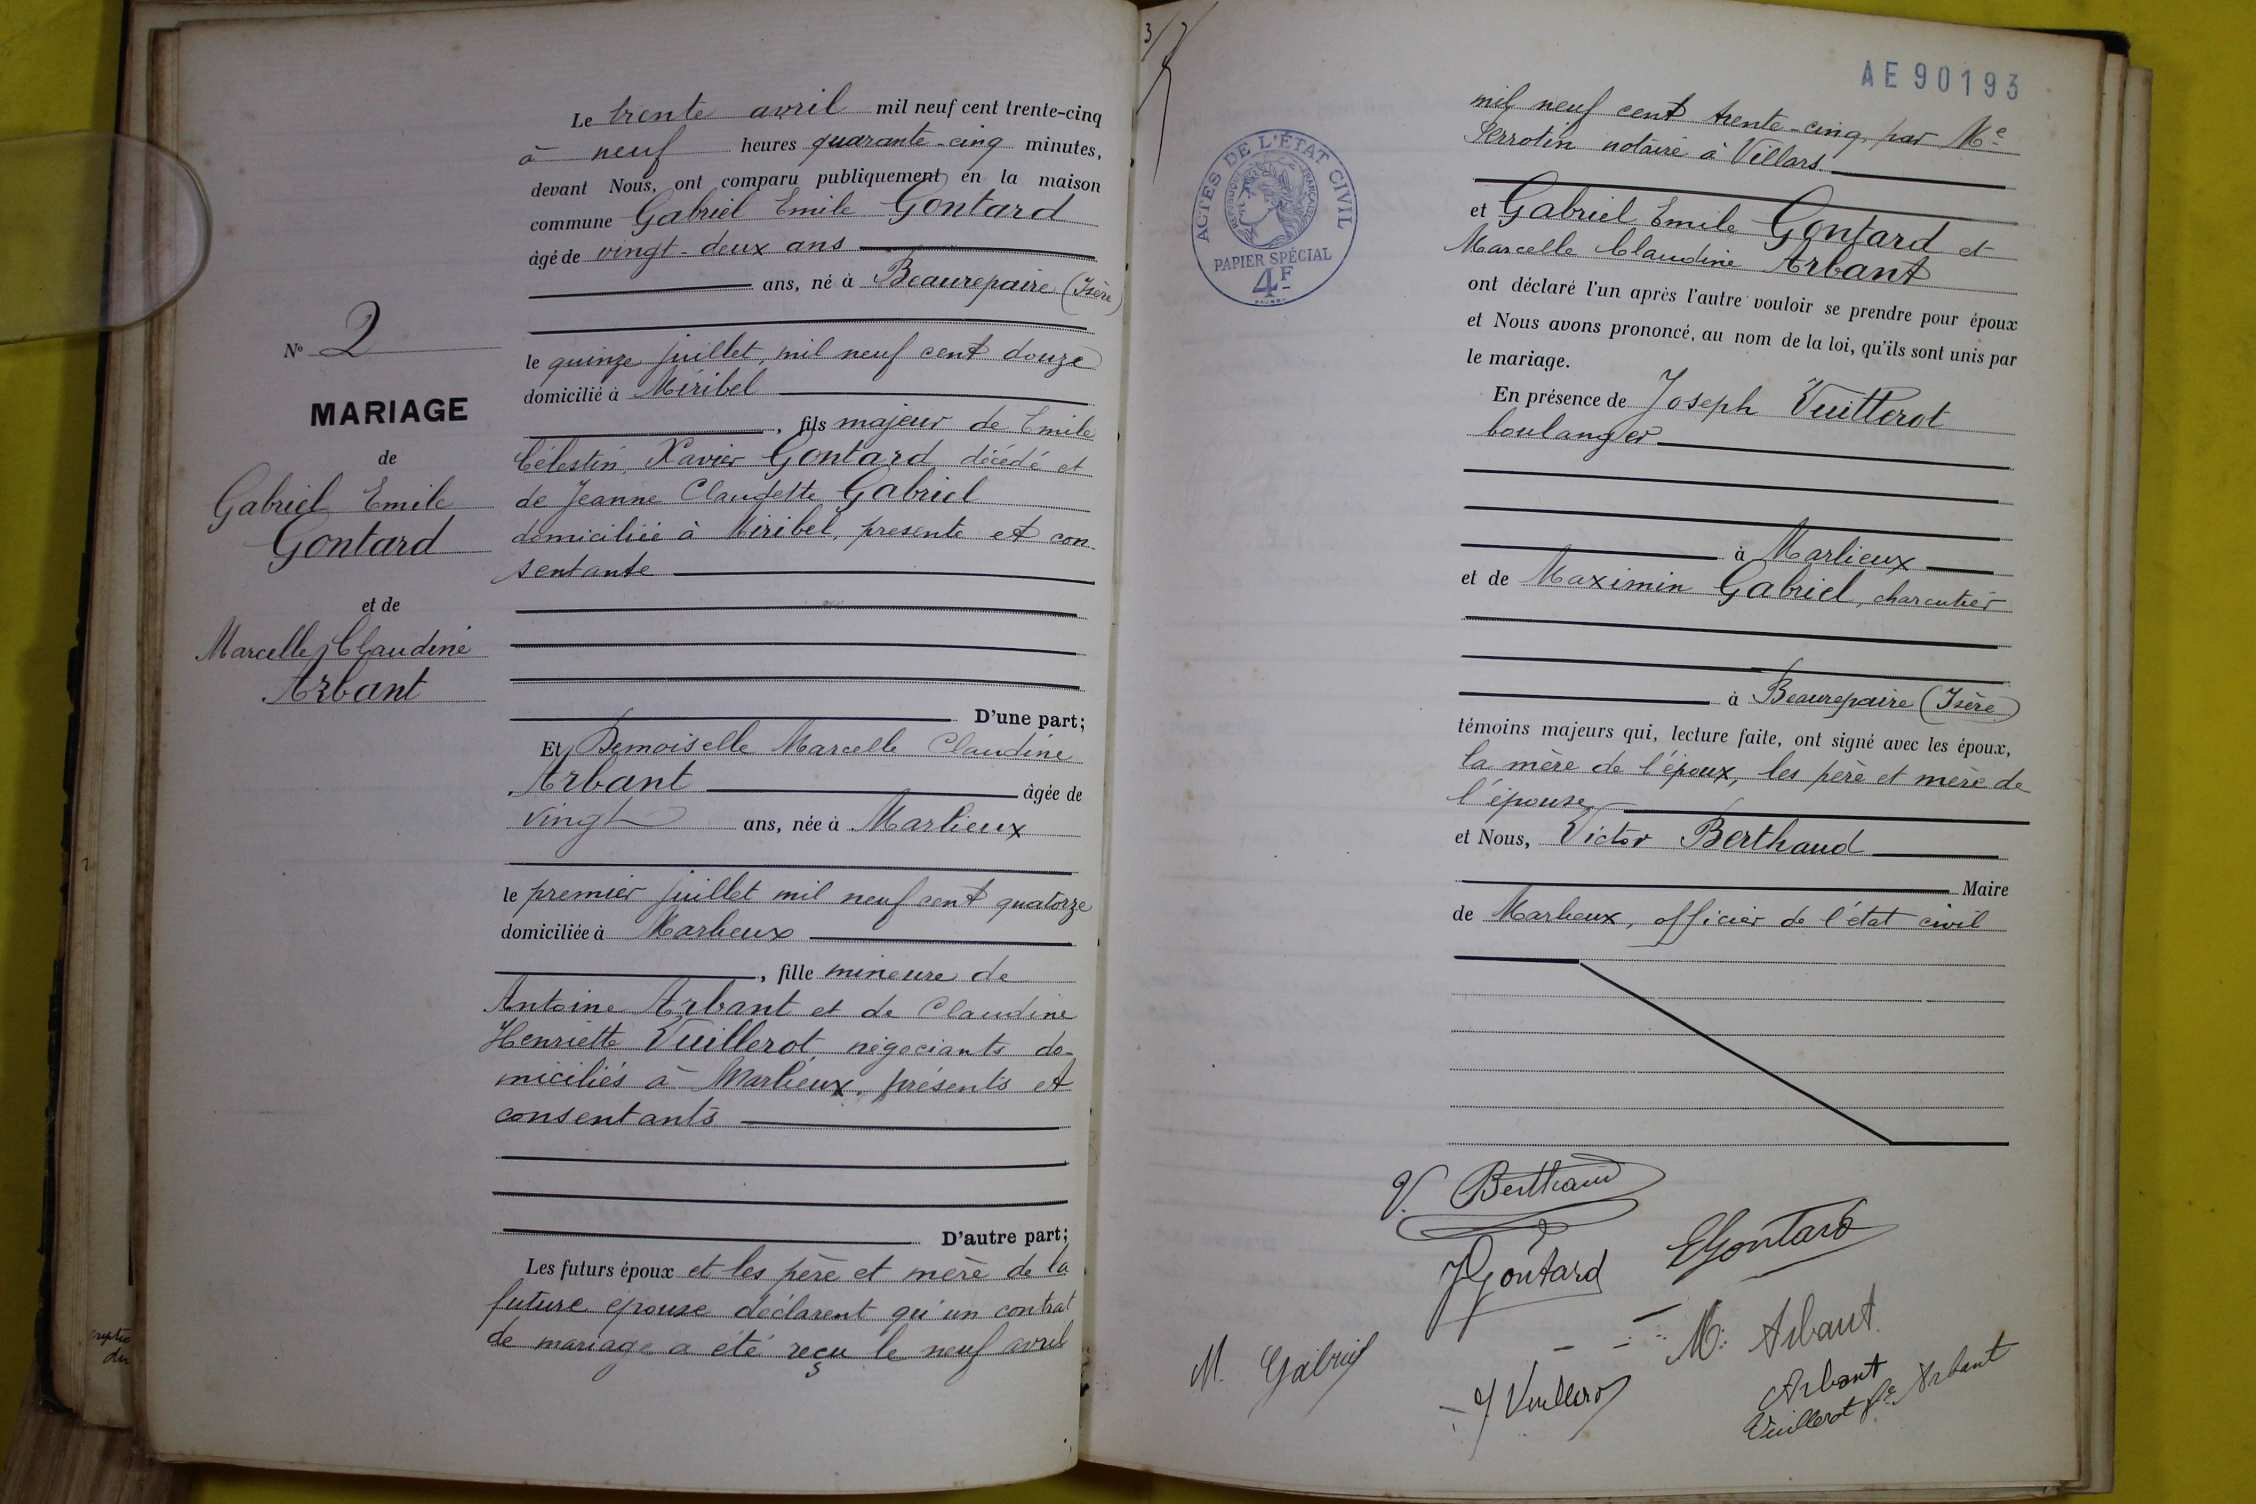 Le trente avril mil neuf cent trente-cinq
à neuf heures quarante-cinq minutes,
devant Nous, ont comparu publiquement en la maison
commune Gabriel Emile Gontard
âgé de vingt-deux ans
ans, né à Beaurepaire (Isère)
le quinze juillet, mil neuf cent douze
domicilié à Miribel
, fils majeur de Emile
Célestin, Xavier Gontard décédé et
de Jeanne Claudette Gabriel
domiciliée à Miribel, présente et con-
sentante
D'une part;
Et Demoiselle Marcelle Claudine
Arbant âgée de
vingt ans, née à Marlieux
le premier juillet mil neuf cent quatorze
domiciliée à Marlieux
, fille mineure de
Antoine Arbant et de Claudine
Henriette Vuillerot négociants do-
miciliés à Marlieux, présents et
consentants
D'autre part;
Les futurs époux et les père et mère de la
future épouse déclarent qu'un contrat
de mariage a été reçu le neuf avril
No 2
MARIAGE
de
Gabriel Emile
Gontard
et de
Marcelle Claudine
Arbant
3/
AE90193
ACTES DE L'ÉTAT CIVIL
RÉPUBLIQUE FRANÇAISE
PAPIER SPÉCIAL
4F
mil neuf cent trente-cinq, par Me
Perrotin notaire à Villars
et Gabriel Emile Gontard et
Marcelle Claudine Arbant
ont déclaré l'un après l'autre vouloir se prendre pour époux
et Nous avons prononcé, au nom de la loi, qu'ils sont unis par
le mariage.
En présence de Joseph Vuillerot
boulanger
à Marlieux
et de Maximin Gabriel, charcutier
à Beaurepaire (Isère)
témoins majeurs qui, lecture faite, ont signé avec les époux,
la mère de l'époux, les père et mère de
l'épouse
et Nous, Victor Berthaud
Maire
de Marlieux, officier de l'état civil
V. Berthaud
JGontard
EGontard
M. Arbant
M. Gabriel
J Vuillerot
Arbant
Vuillerot fe Arbant